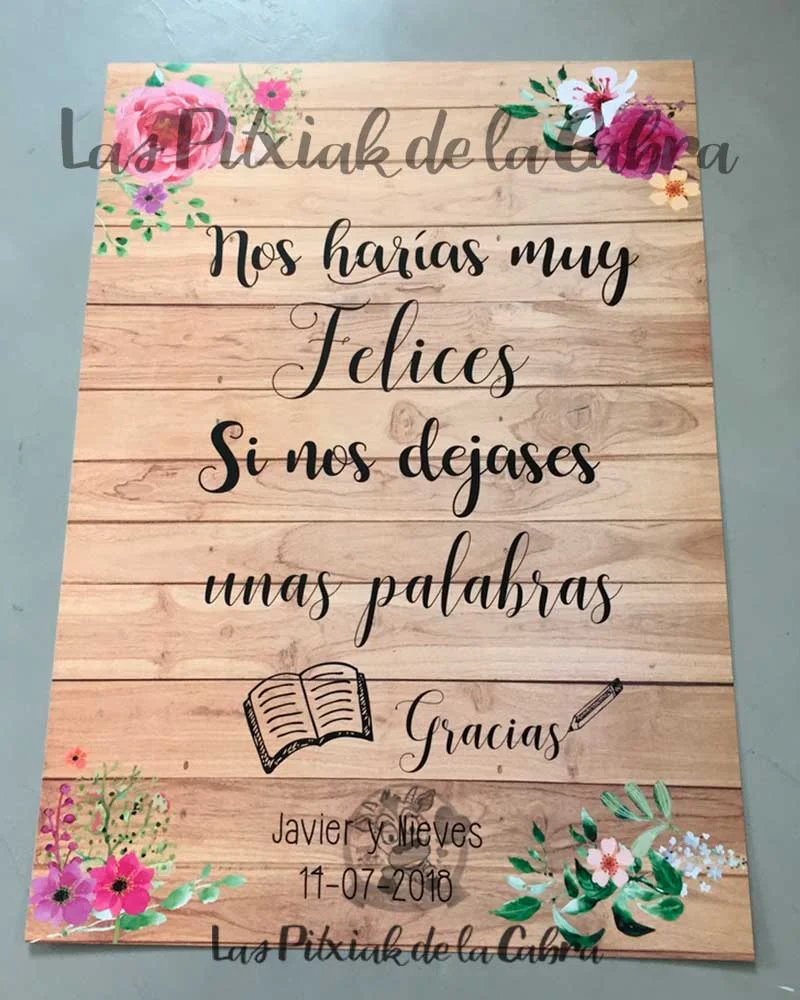 Las Pitxiak de la Cabra
Nos harías muy
Felices
Si nos dejases
unas palabras
Gracias
Javier y Nieves
14-07-2018
Las Pitxiak de la Cabra